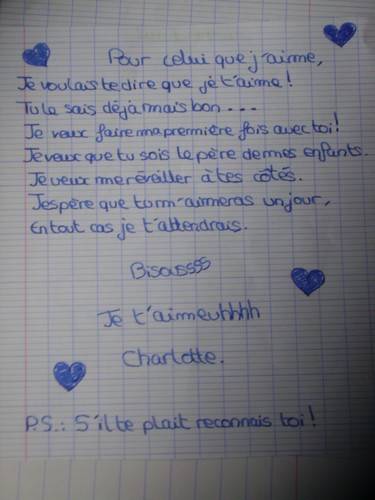 Pour celui que j'aime,
Je voulais te dire que je t'aime !
Tu le sais déjà mais bon ...
Je veux faire ma première fois avec toi !
Je veux que tu sois le père de mes enfants.
Je veux me réveiller à tes côtés.
J'espère que tu m'aimeras un jour,
En tout cas je t'attendrais.
Bisousssss
Je t'aimeuhhhh
Charlotte.
P.S.: S'il te plait reconnais toi !